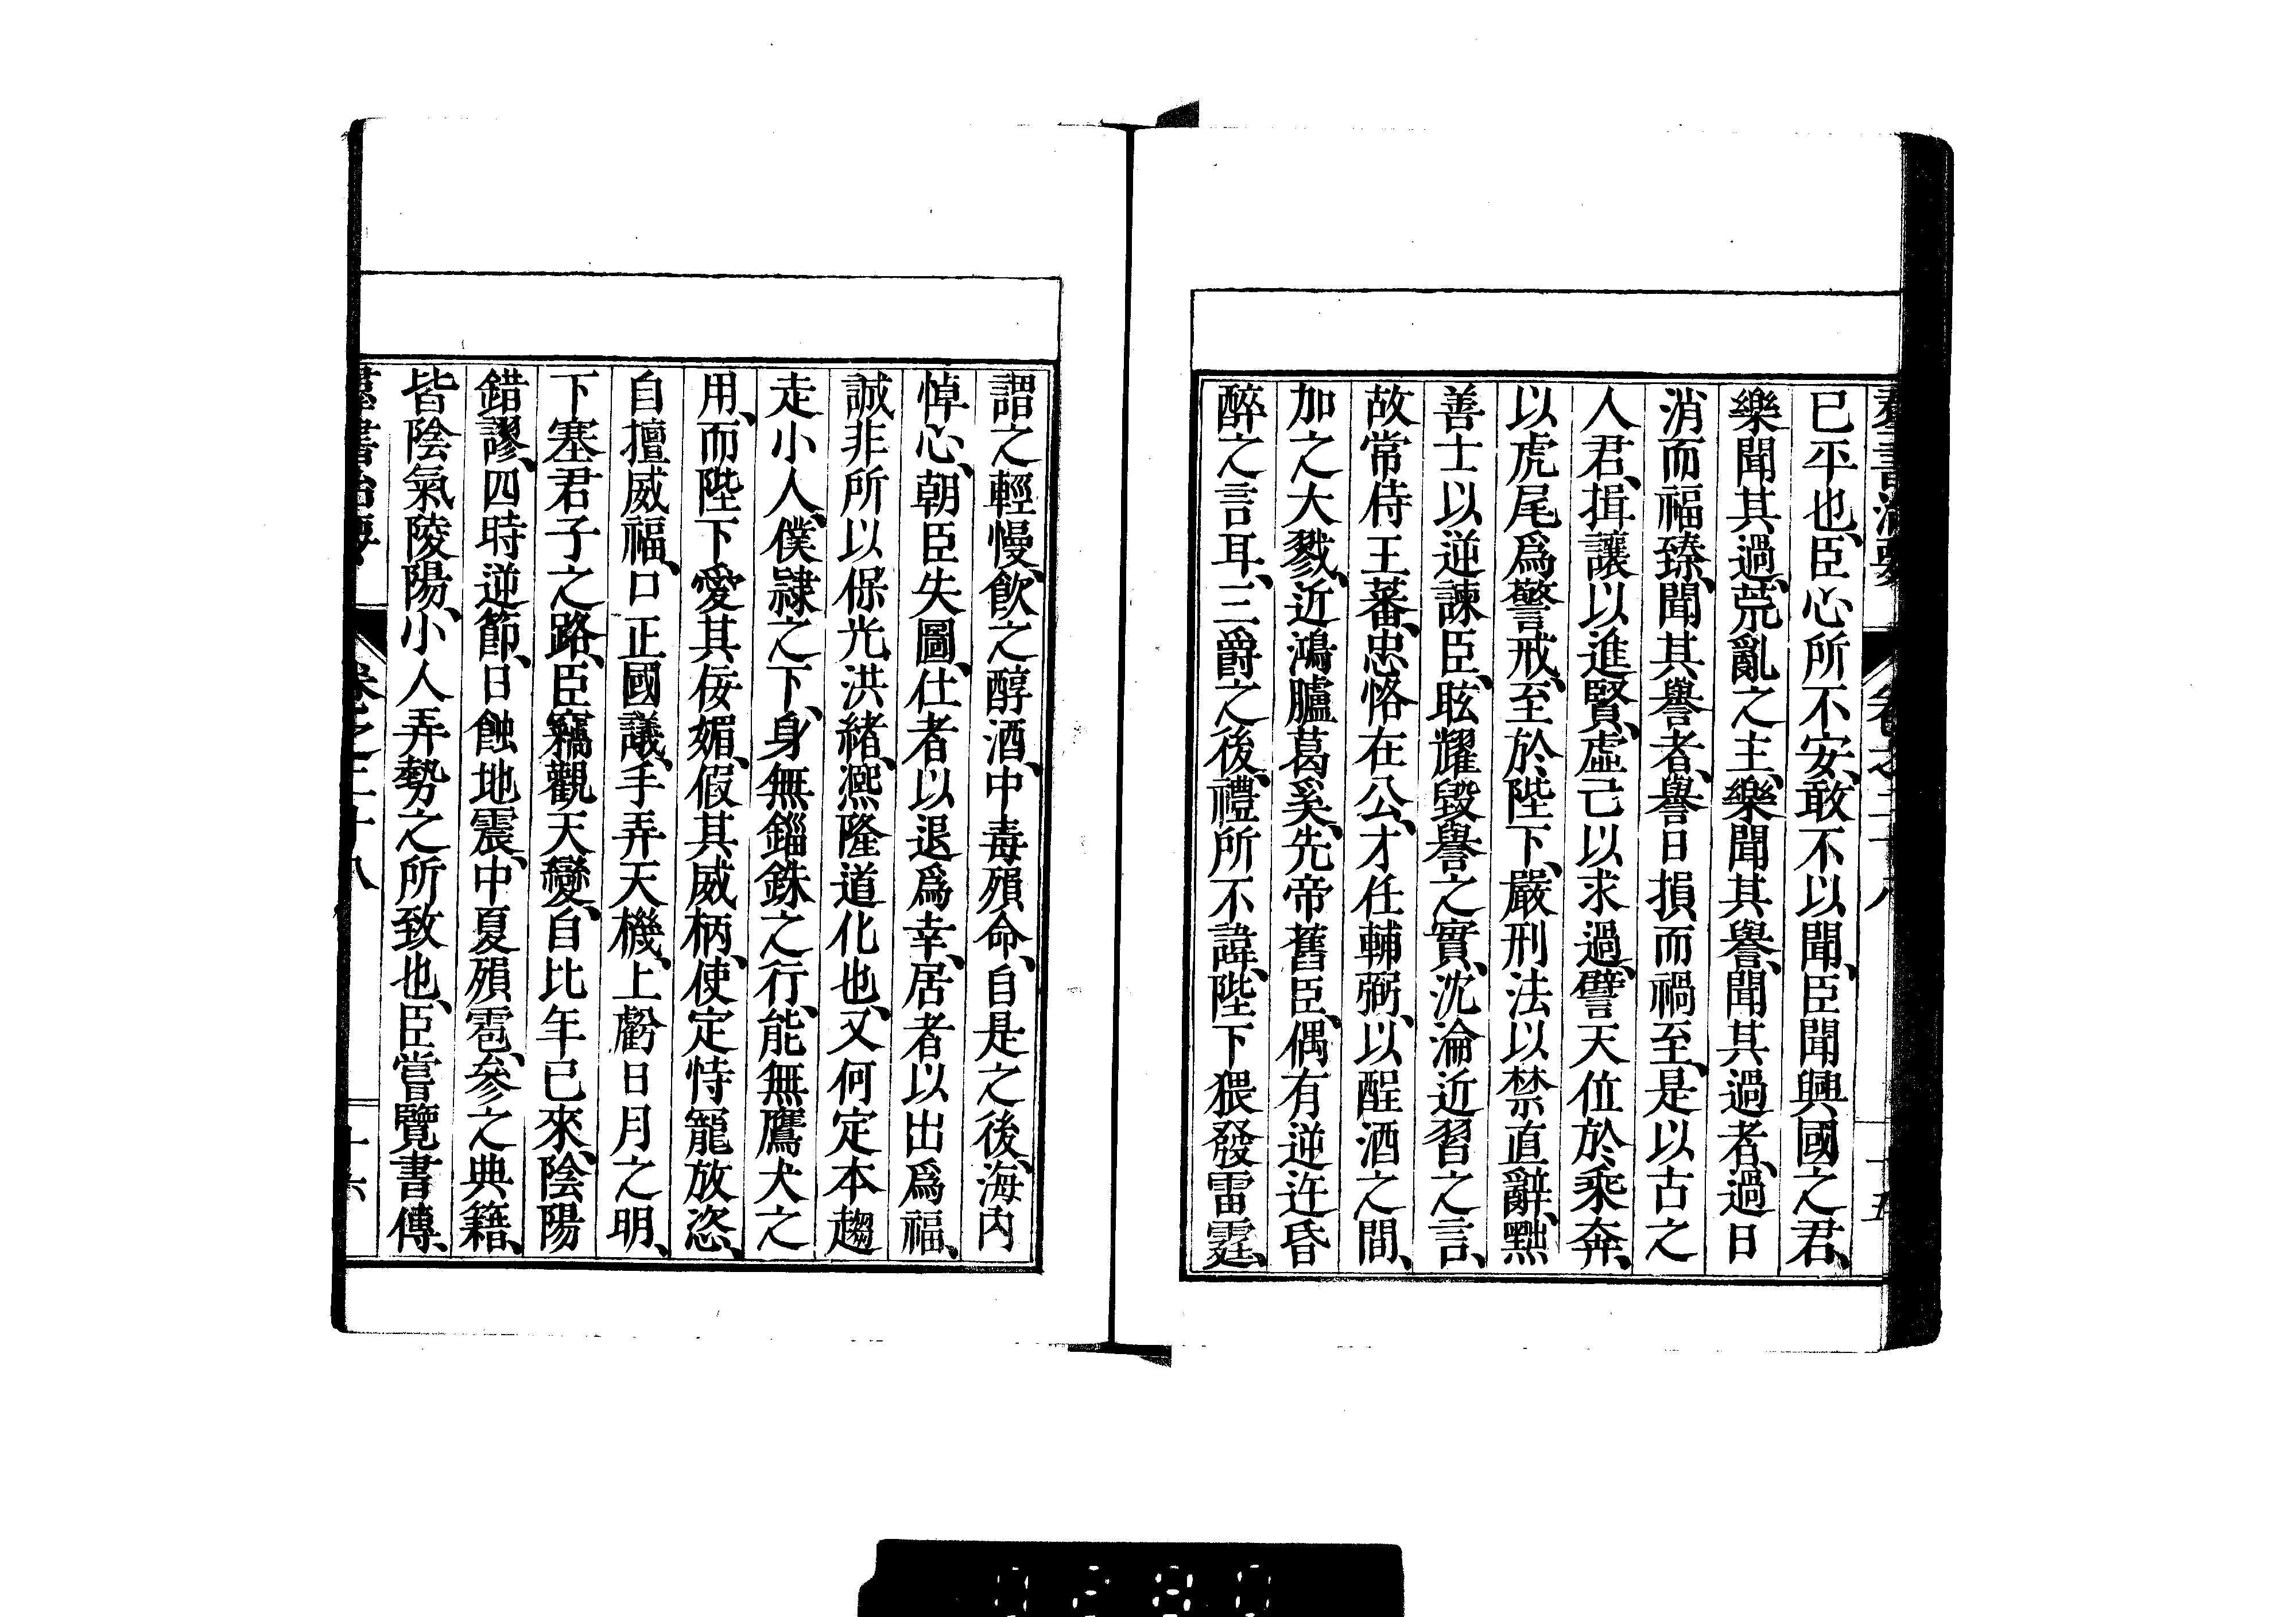 羣書治要 卷之二十八 十五
已平也、臣心所不安、敢不以聞、臣聞興國之君、
樂聞其過、荒亂之主、樂聞其譽、聞其過者、過日
消而福臻、聞其譽者、譽日損而禍至、是以古之
人君、揖讓以進賢、虛己以求過、譬天位於乘奔、
以虎尾爲警戒、至於陛下、嚴刑法以禁直辭、黜
善士以逆諫臣、眩耀毀譽之實、沈淪近習之言、
故常侍王蕃、忠恪在公、才任輔弼、以酲酒之間、
加之大戮、近鴻臚葛奚、先帝舊臣、偶有逆迕昏
醉之言耳、三爵之後、禮所不諱、陛下猥發雷霆、
謂之輕慢、飲之醇酒、中毒殞命、自是之後、海內
悼心、朝臣失圖、仕者以退爲幸、居者以出爲福、
誠非所以保光洪緒、熈隆道化也、又何定本趨
走小人、僕隷之下、身無錙銖之行、能無鷹犬之
用、而陛下愛其佞媚、假其威柄、使定恃寵放恣、
自擅威福、口正國議、手弄天機、上虧日月之明、
下塞君子之路、臣竊觀天變、自比年已來、陰陽
錯謬、四時逆節、日蝕地震、中夏殞雹、參之典籍、
皆陰氣陵陽、小人弄勢之所致也、臣嘗覽書傳、
羣書治要 卷之二十八 十六